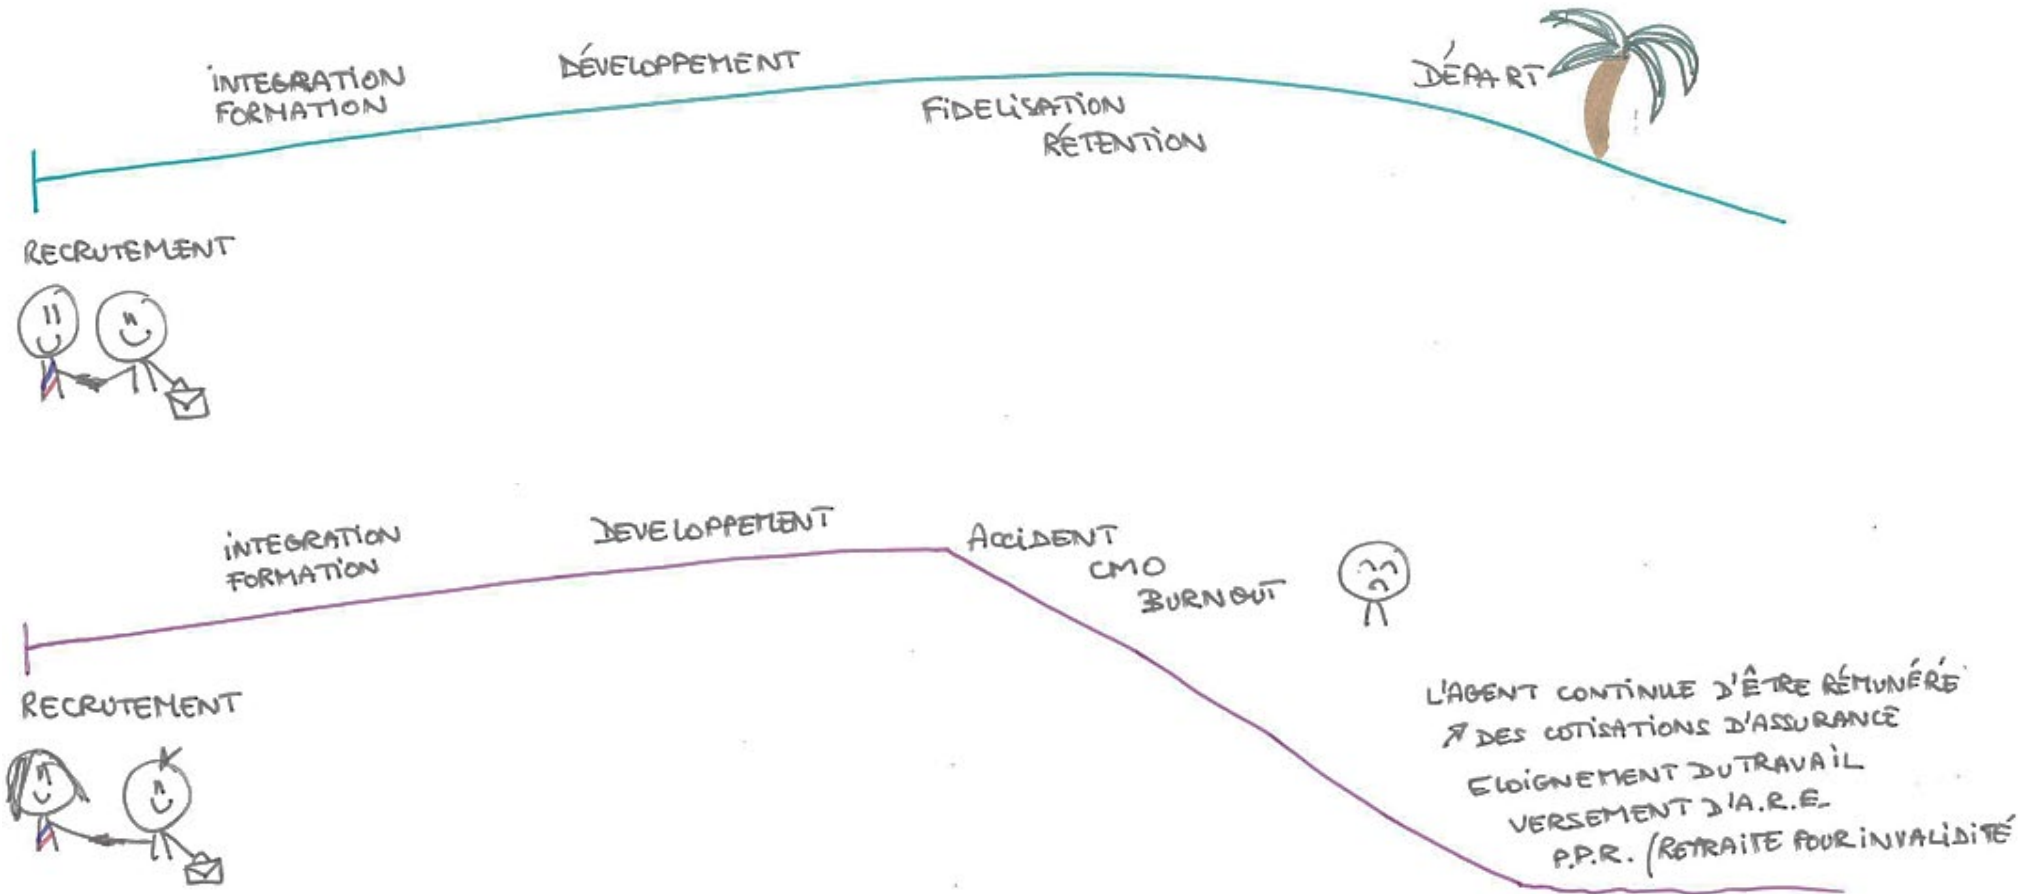 INTEGRATION
FORMATION
DÉVELOPPEMENT
FIDELISATION
RÉTENTION
DÉPART
RECRUTEMENT
INTEGRATION
FORMATION
DEVELOPPEMENT
ACCIDENT
CMO
BURNOUT
RECRUTEMENT
L'AGENT CONTINUE D'ÊTRE RÉMUNÉRÉ
↗ DES COTISATIONS D'ASSURANCE
ELOIGNEMENT DU TRAVAIL
VERSEMENT D'A.R.E.
P.P.R. (RETRAITE POUR INVALIDITÉ